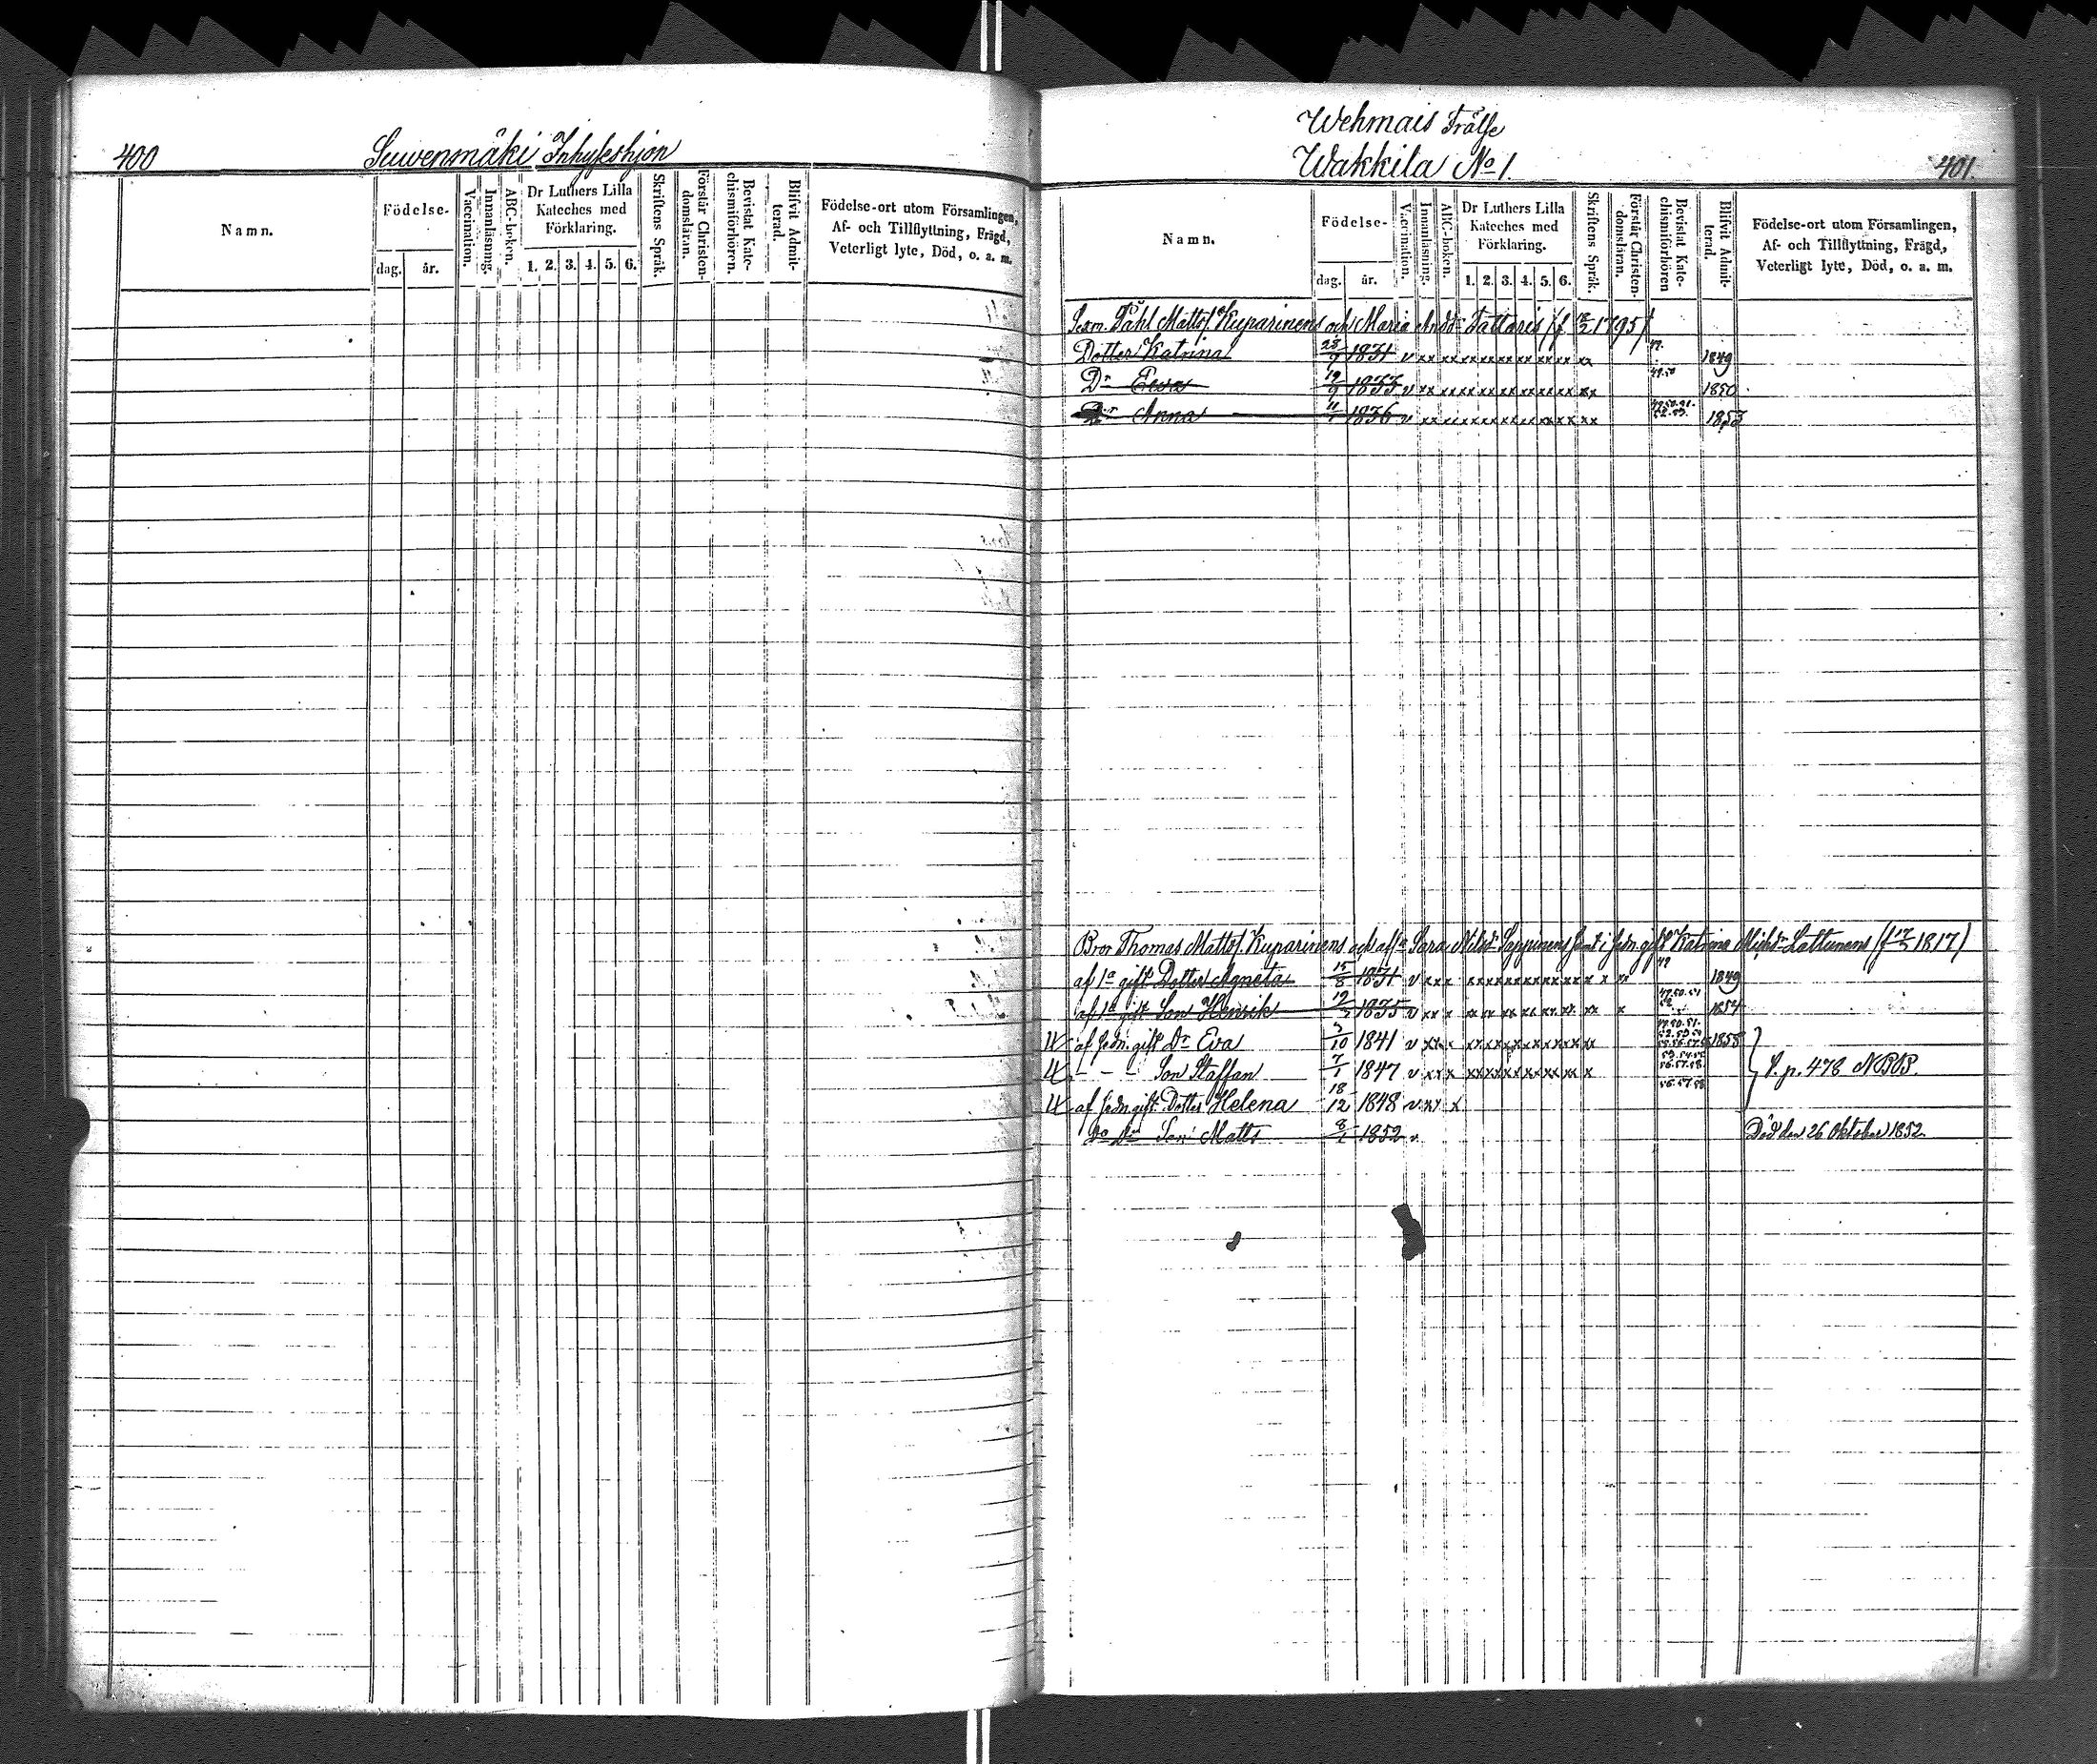 400
Suwenmäki Inhyseshjon
Namn.
Födelse-
dag.
år.
Vaccination.
Innanläsning.
ABC-boken.
Dr Luthers Lilla
Kateches med
Förklaring.
1. 2. 3. 4. 5. 6.
Skriftens Språk.
Förstår Christen-
domsläran.
Bevistat Kate-
chismiförhören.
Blifvit Admit-
terad.
Födelse-ort utom Församlingen,
Af- och Tillflyttning, Frägd,
Veterligt lyte, Död, o. a. m.
Wehmais Frälse
Wakkila No 1.
401.
Namn.
Födelse-
dag.
år.
Vaccination.
Innanläsning.
ABC-boken.
Dr Luthers Lilla
Kateches med
Förklaring.
1. 2. 3. 4. 5. 6.
Skriftens Språk.
Förstår Christen-
domsläran.
Bevistat Kate-
chismiförhören
Blifvit Admit-
terad.
Födelse-ort utom Församlingen,
Af- och Tillflyttning, Frägd,
Veterligt lyte, Död, o. a. m.
Påhl Matts. Kuparinens och Maria Andsdr Tattaris 1795
Dotter Katrina 23/9 1831 v xx xx xx xx xx xx xx xx xx 49. 1849
Dr Ewa 19/9 1833 v xx xx xx xx xx xx xx xx xx 49.50 1850
Dr Anna 1836 v xx xx xx xx xx xx xx xx xx 1853
Bror Thomas Matts. Kuparinens och Sara Nilsdr gift Katrina Michsdr Lattunens 1817)
af 1a gift Dotter Agneta 15/8 1831 v 49 1849
af 1a gift Son Henrik 1835 v 49.50.51 1854
af sedn. gift Dr Eva 3/10 1841 v 1858
- - - Son Staffan 7/1 1847 v p. 478 N.B.B.
af sedn. gift Dotter Helena 18/12 1848 v xx x 56.57.58
Do Dr Son Matts 8/1 1852 v Död den 26 Oktober 1852.